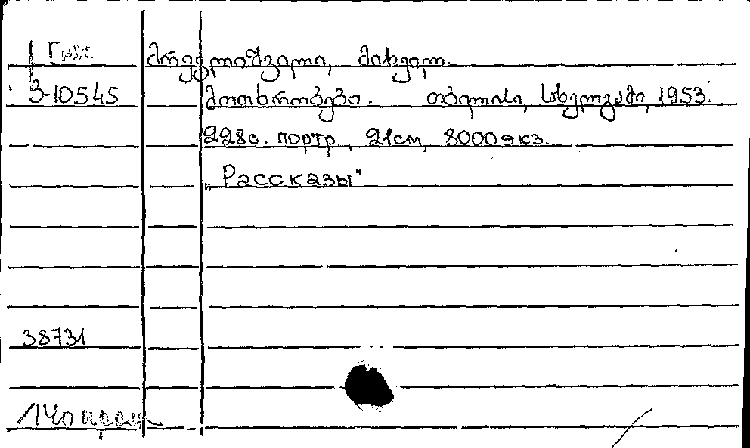 Груз. მრევლიშვილი, მიხეილ.
3-10545 მოთხრობები. თბილისი, სახელგამი, 1953.
228с. портр., 21см, 8000экз.
„Рассказы"
38731